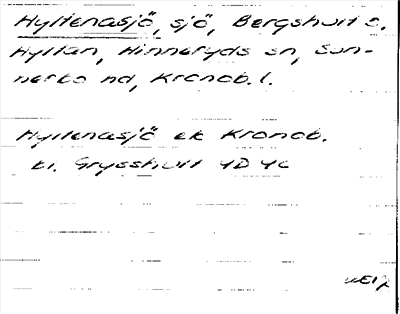 Hyltenasjö, sjö, Bergshult o.
Hyltan, Hinneryds sn, Sun-
nerbo hd, Kronob. l.
Hyltenasjö ek Kronob.
bl. Grysshult 4D 4c